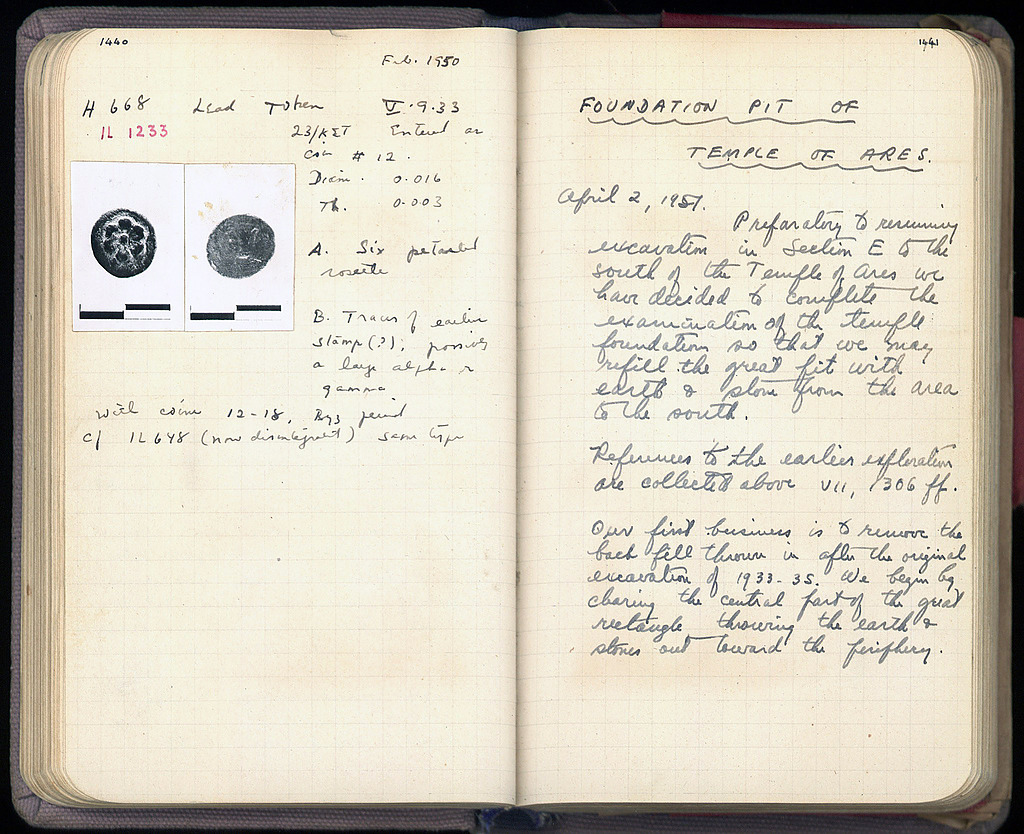 1440
Feb. 1950
H 668 Lead Token V.9.33
IL 1233
23/ΚΣΤ Entered as
coin # 12.
Diam. 0.016
Th. 0.003
A. Six petaled
rosette
B. Traces of earlier
stamp (?); possibly
a large alpha or
gamma
with coins 12-18, Byz period
cf IL 648 (now disintegrated) same type
1441
FOUNDATION PIT OF
TEMPLE OF ARES.
April 2, 1951.
Preparatory to resuming
excavation in Section E to the
south of the Temple of Ares we
have decided to complete the
examination of the temple
foundation so that we may
refill the great pit with
earth & stone from the area
to the south.
References to the earlier exploration
are collected above VII, 1306 ff.
Our first business is to remove the
back fill thrown in after the original
excavation of 1933-35. We begin by
clearing the central part of the great
rectangle throwing the earth &
stones out toward the periphery.